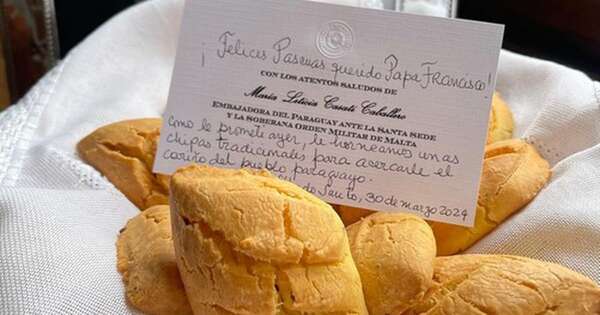 ¡Felices Pascuas querido Papa Francisco!
CON LOS ATENTOS SALUDOS DE
María Leticia Casati Caballero
EMBAJADORA DEL PARAGUAY ANTE LA SANTA SEDE
Y LA SOBERANA ORDEN MILITAR DE MALTA
como le prometí ayer, le horneamos unas
chipas tradicionales para acercarle el
cariño del pueblo paraguayo.
do Santo, 30 de marzo 2024